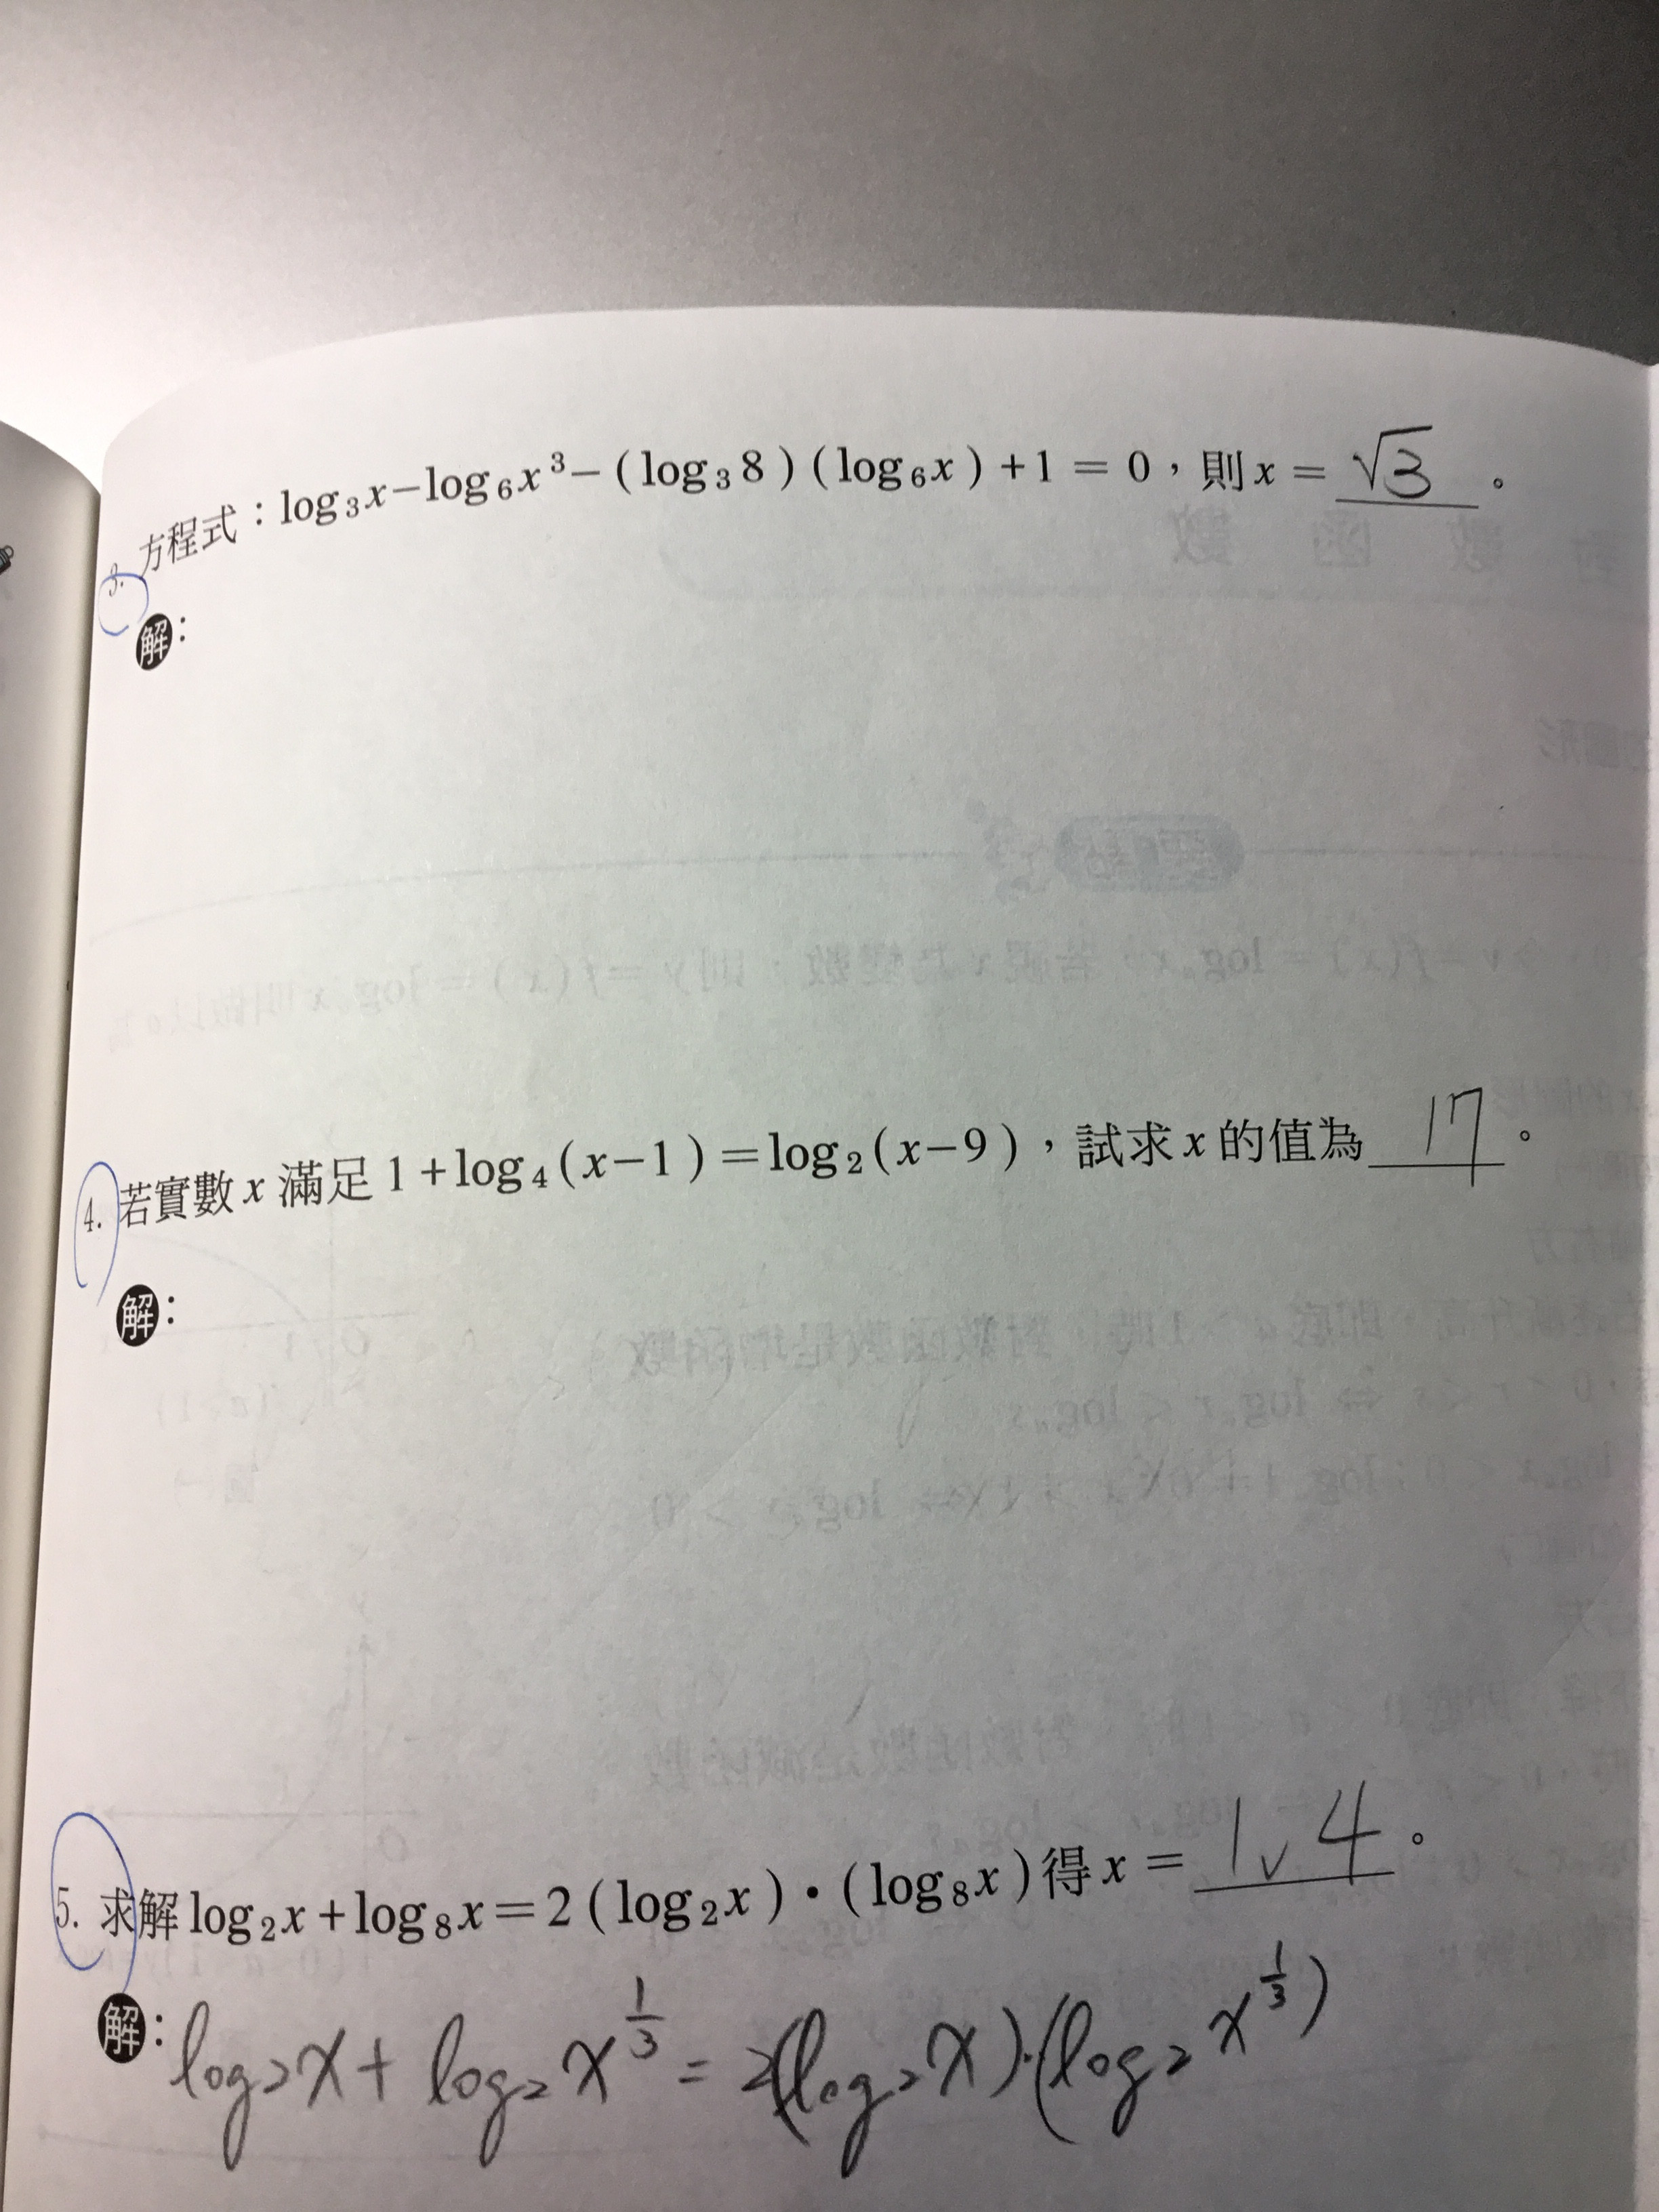 3. 方程式：log₃x－log₆x³－（log₃8）（log₆x）+1 = 0，則x = √3。
解：
4. 若實數x滿足1+log₄（x－1）=log₂（x－9），試求x的值為 17。
解：
5. 求解log₂x+log₈x=2（log₂x）·（log₈x）得x = 1、4。
解：log₂x + log₂x^(1/3) = 2(log₂x)·(log₂x^(1/3))